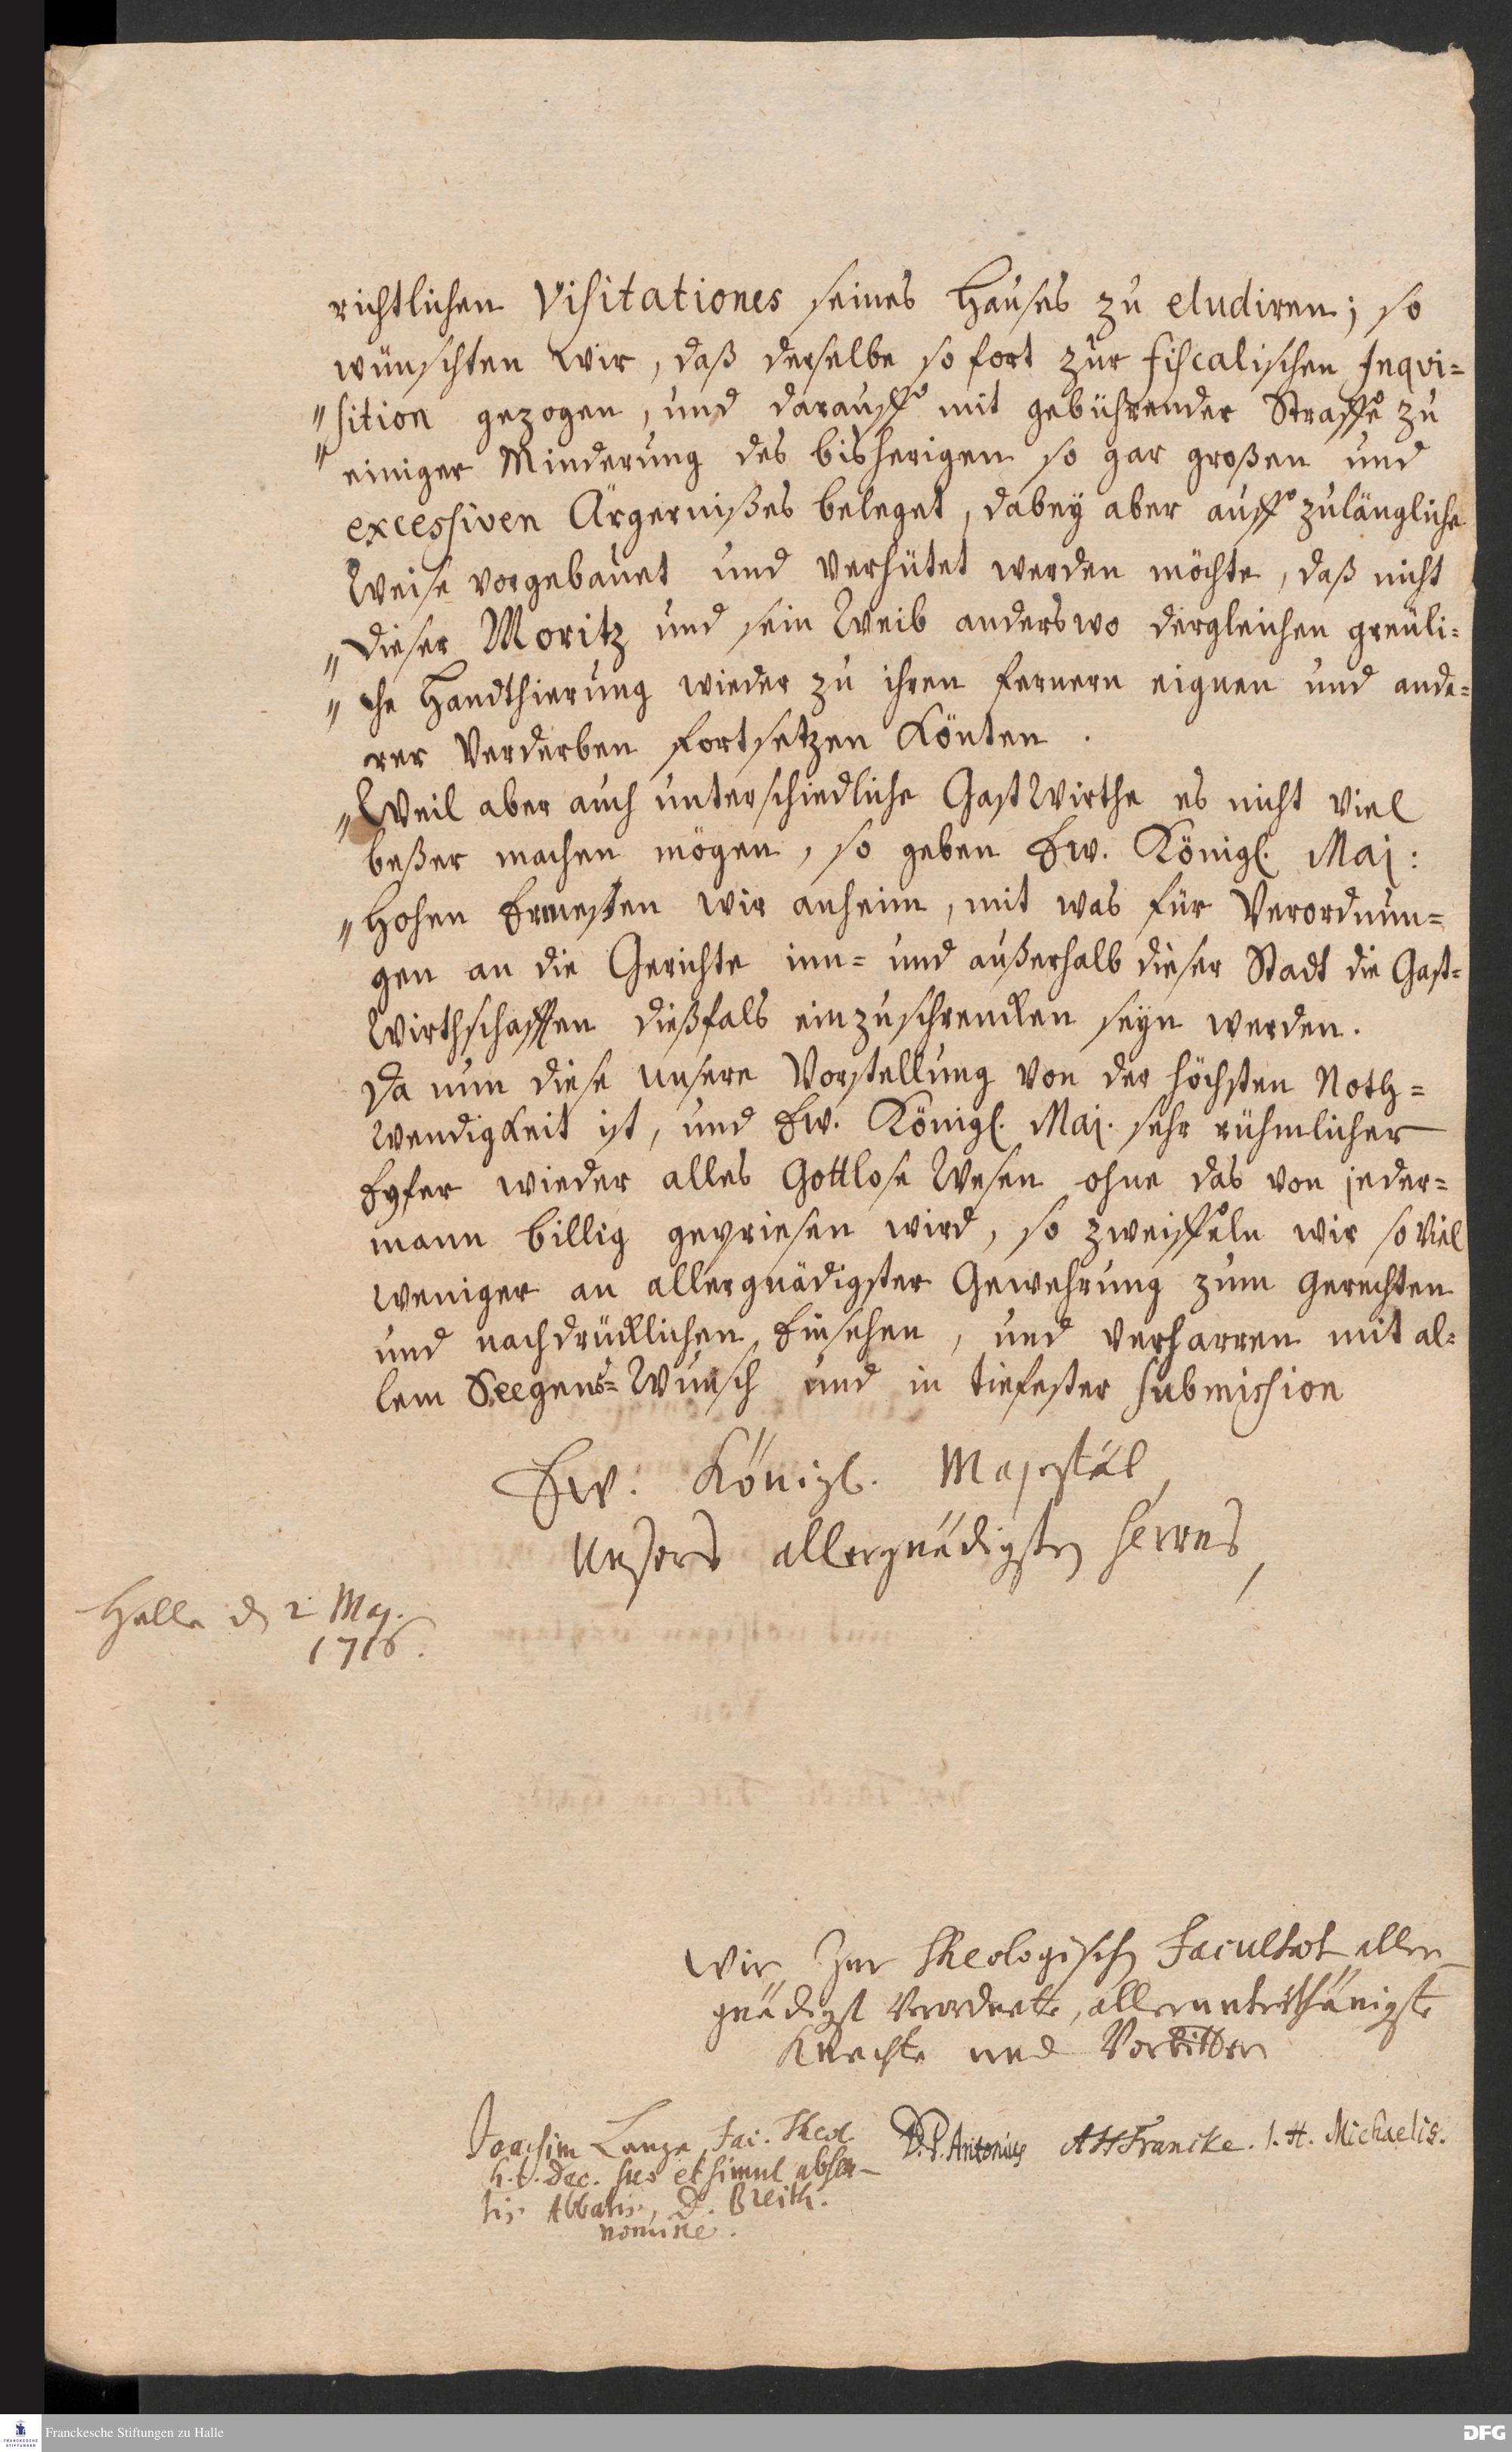 richtlichen Visitationes seines Hauses zu eludiren; so
wünschten wir, daß derselbe so fort zur fiscalischen Inqvi=
" sition gezogen, und darauff mit gebührender Straffe zu
" einiger Minderung des bisherigen so gar großen und
excessiven Ärgernißes beleget, dabey aber auff zulängliche
Weise vorgebauet und verhütet werden möchte, daß nicht
" dieser Moritz und sein Weib anderswo dergleichen greuli=
" che Handthierung wieder zu ihren fernern eignen und ande=
rer Verderben fortsetzen könten.
" Weil aber auch unterschiedliche GastWirthe es nicht viel
beßer machen mögen, so geben Ew. Königl. Maj:
" hohen Ermeßen wir anheim, mit was für Verordnun=
gen an die Gerichte inn= und außerhalb dieser Stadt die Gast=
Wirthschafften dießfals einzuschrencken seyn werden.
Da nun diese unsere Vorstellung von der höchsten Noth=
wendigkeit ist, und Ew. Königl. Maj. sehr rühmlicher
Eyfer wieder alles Gottlose Wesen ohne das von jeder=
mann billig gepriesen wird, so zweiffeln wir so viel
weniger an allergnädigster Gewehrung zum gerechten
und nachdrücklichen Einsehen, und verharren mit al=
lem Seegens=Wunsch und in tiefester submission
Ew. Königl. Majestät,
Unsers allergnädigsten Herrns,
Halle d. 2 Maj.
1716.
Wir zur Theologischen Facultät aller-
gnädigst Verordnete, allerunterthänigste
Knechte und Vorbitter
Joachim Lange, Fac. Theol.
h. t. Dec. suo et simul absen-
tis Abbatis, D. Breith.
nomine.
D. P. Antonius AHFrancke. I. H. Michaelis.
Franckesche Stiftungen zu Halle
DFG